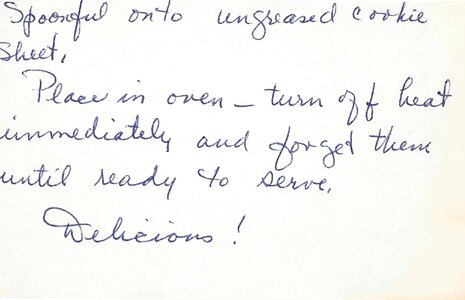 Spoonful onto ungreased cookie
sheet.
Place in oven – turn off heat
immediately and forget them
until ready to serve.
Delicious!